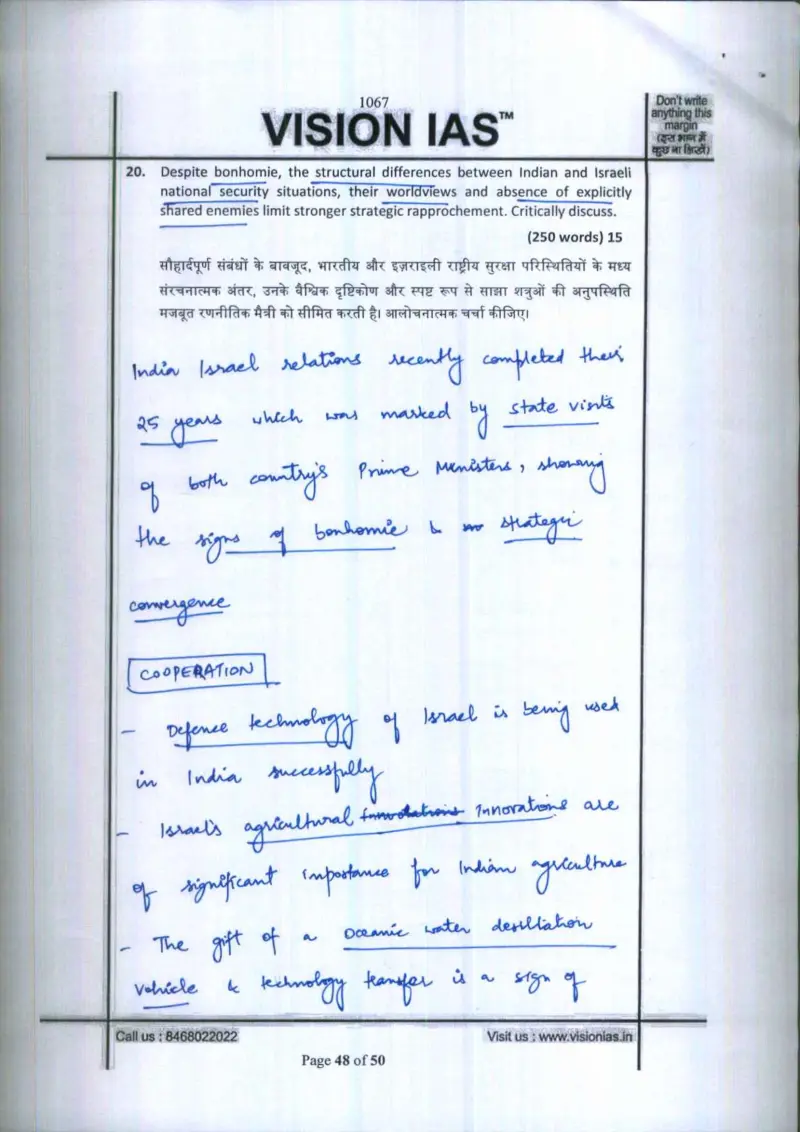 1067
VISION IAS™
Don't write
anything this
margin
(इस भाग में
कुछ ना लिखें)
20. Despite bonhomie, the structural differences between Indian and Israeli
national security situations, their worldviews and absence of explicitly
shared enemies limit stronger strategic rapprochement. Critically discuss.
(250 words) 15
सौहार्दपूर्ण संबंधों के बावजूद, भारतीय और इज़राइली राष्ट्रीय सुरक्षा परिस्थितियों के मध्य
संरचनात्मक अंतर, उनके वैश्विक दृष्टिकोण और स्पष्ट रूप से साझा शत्रुओं की अनुपस्थिति
मजबूत रणनीतिक मैत्री को सीमित करती है। आलोचनात्मक चर्चा कीजिए।
India Israel relations recently completed their
25 years which was marked by state visits
of both country's Prime Ministers, showing
the signs of bonhomie & strategic
convergence
COOPERATION
- Defence technology of Israel is being used
in India successfully
- Israel's agricultural Innovations are
of significant importance for Indian agriculture
- The gift of a oceanic water desillation
vehicle & technology transfer is a sign of
Call us : 8468022022
Visit us : www.visionias.in
Page 48 of 50